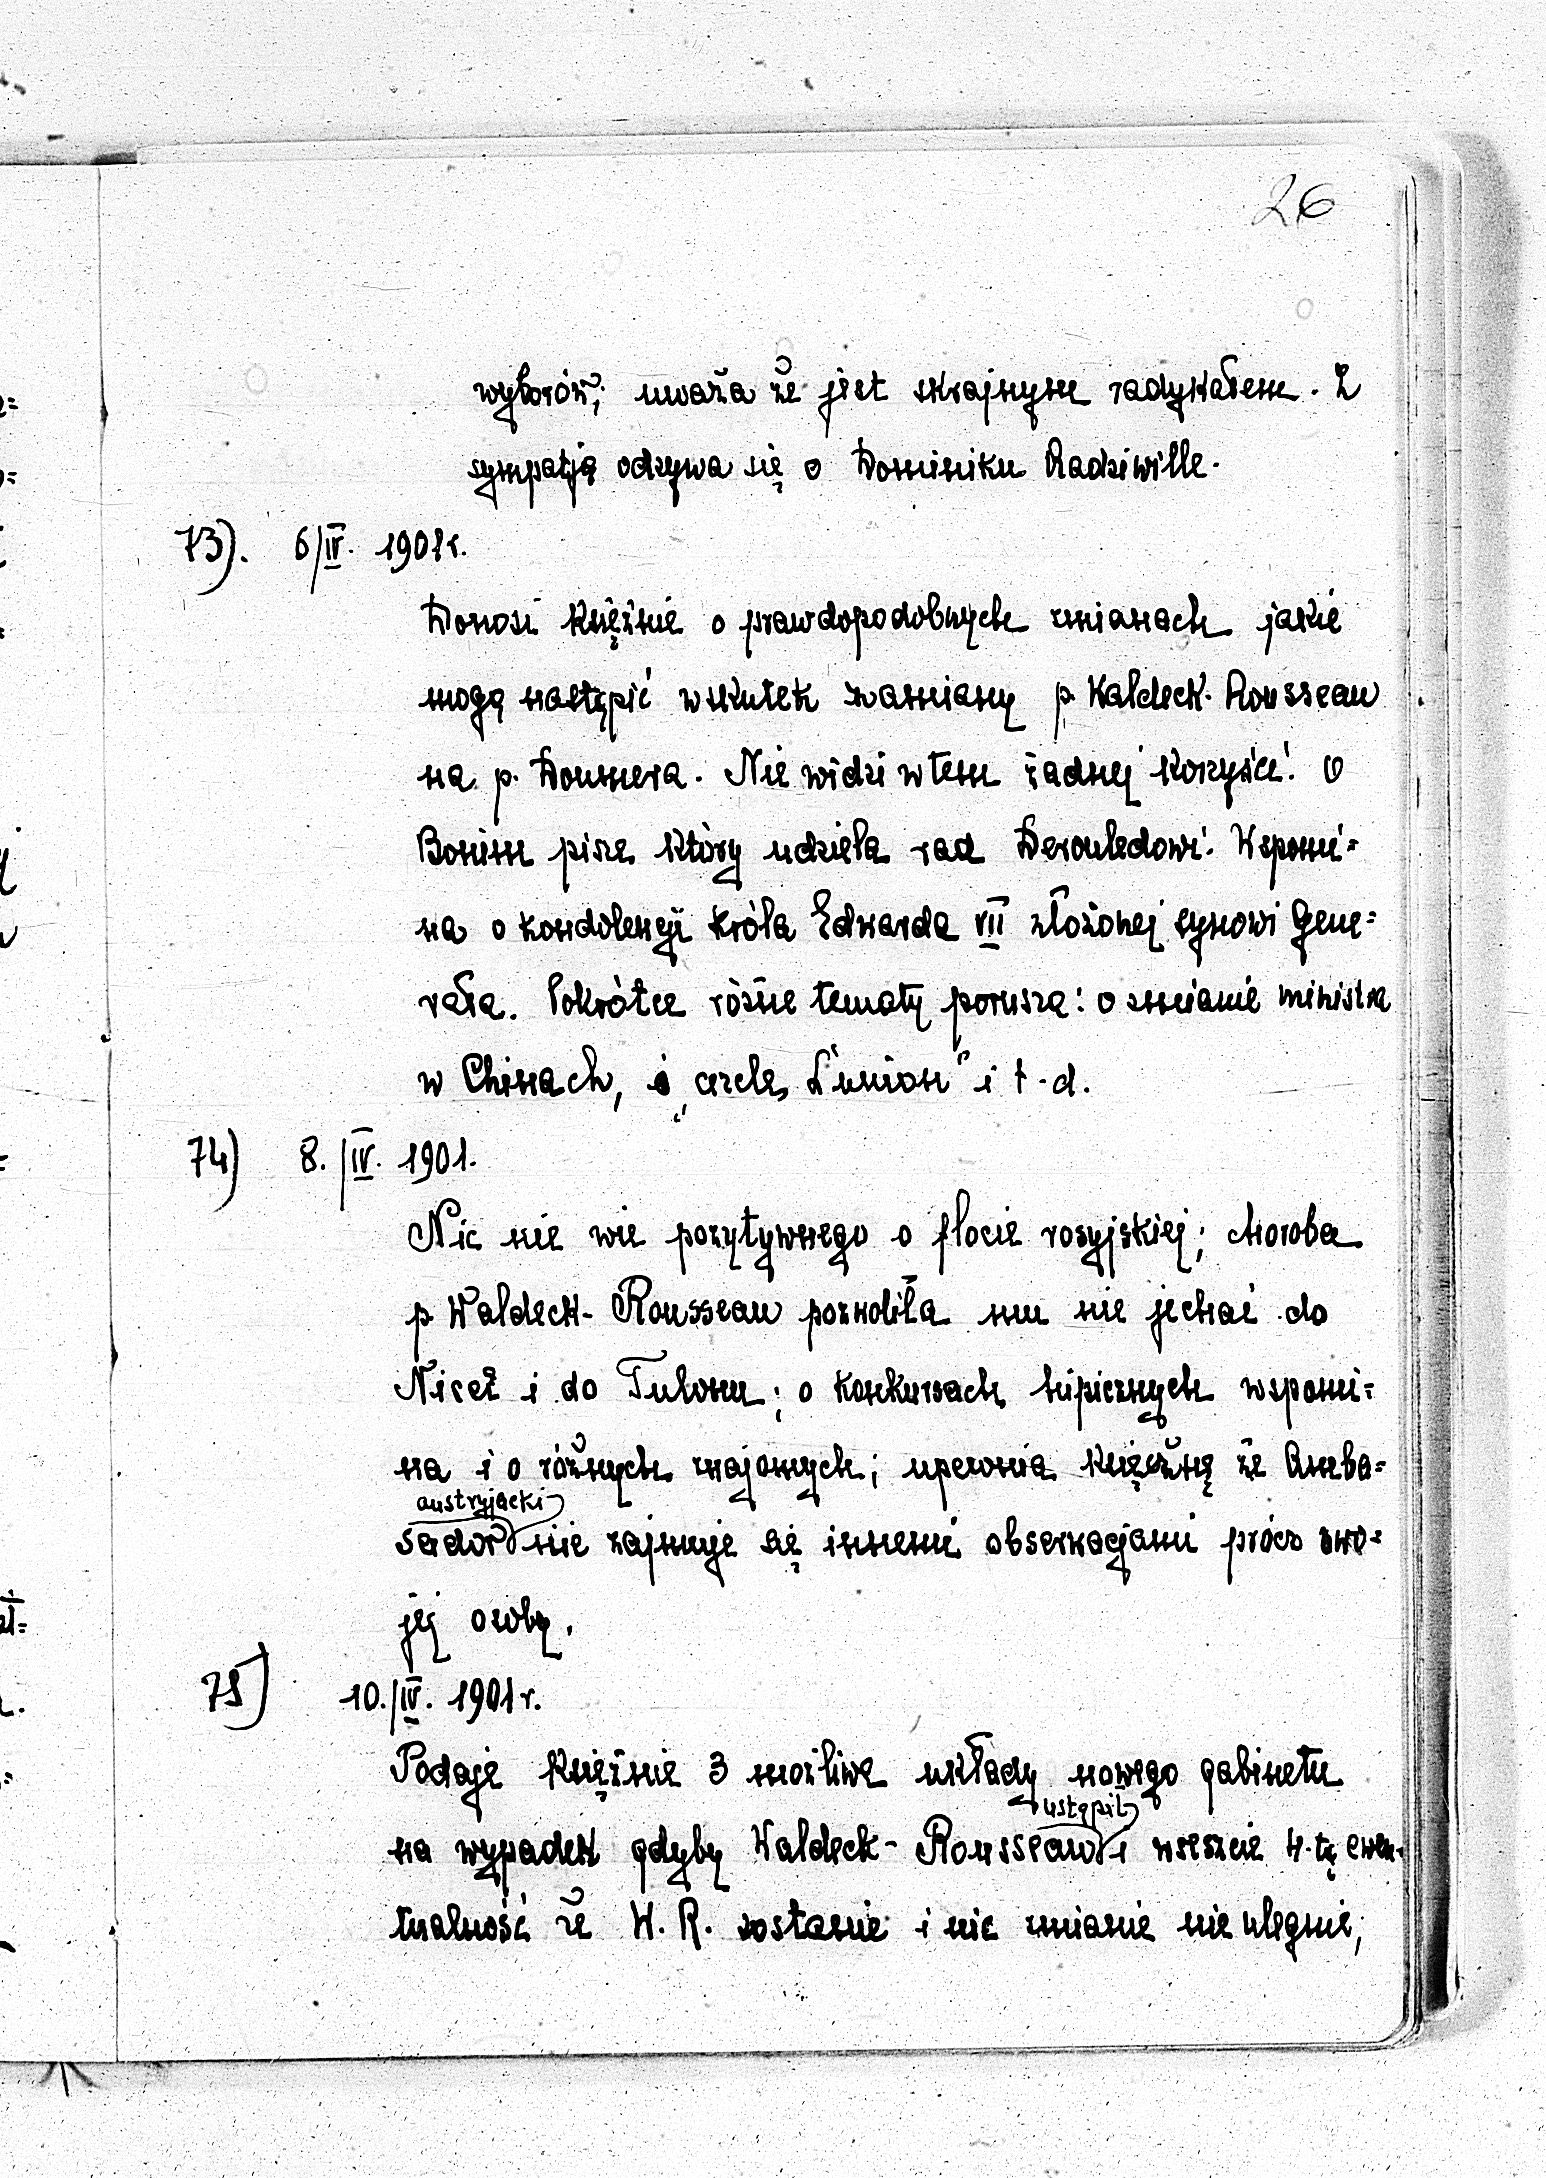 26
wyborów; uważa że jest skrajnym radykałem. Z
sympatją odzywa się o Dominiku Radziwille.
73). 6/IV. 1901r.
Donosi księżnie o prawdopodobnych zmianach jakie
mogą nastąpić wskutek zamiany p. Waldeck-Rousseau
na p. Doumera. Nie widzi w tem żadnej korzyści. O
Bonim pisze który udziela rad Derouledowi. Wspomi=
na o kondolencji króla Edwarda VII złożonej synowi Gene=
rała. Pokrótce różne tematy porusza: o zmianie ministra
w Chinach, o „cercle L'union" i t.d.
74) 8./IV. 1901.
Nic nie wie pozytywnego o flocie rosyjskiej; choroba
p. Waldeck-Rousseau pozwoliła mu nie jechać do
Nicei i do Tulonu; o konkursach hipicznych wspomi=
na i o różnych znajomych; upewnia księżnę że Amba=
sador austryjacki nie zajmuje się innemi obserwacjami prócz swo=
jej osoby.
75) 10./IV. 1901r.
Podaje księżnie 3 możliwe układy nowego gabinetu
na wypadek gdyby Waldeck-Rousseau ustąpił i wreszcie 4-tą ewen-
tualność że W. R. zostanie i nic zmianie nie ulegnie,